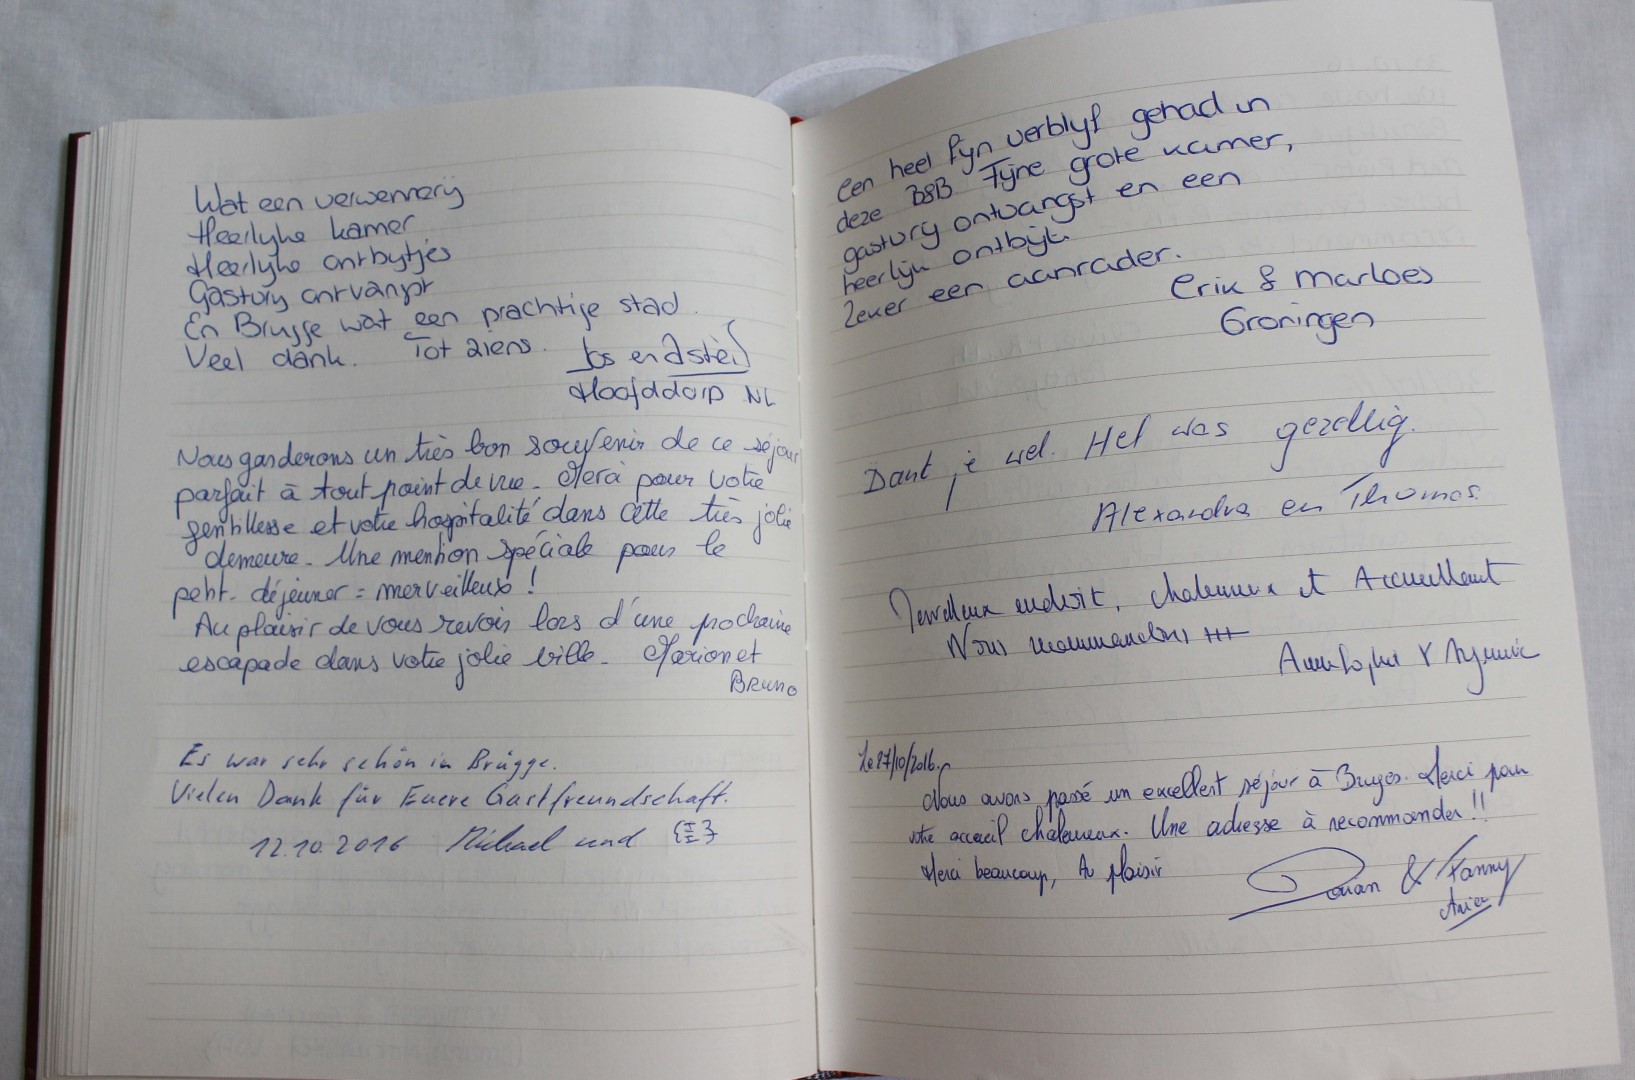 Wat een verwennerij
Heerlyke kamer
Heerlyke ontbytjes
Gastvry ontvangst
En Brugge wat een prachtige stad.
Veel dank. Tot ziens.
Jos en
Hoofddorp NL
Nous garderons un très bon souvenir de ce séjour
parfait à tout point de vue. Merci pour votre
gentillesse et votre hospitalité dans cette très jolie
demeure. Une mention spéciale pour le
petit. déjeuner = merveilleux !
Au plaisir de vous revoir lors d'une prochaine
escapade dans votre jolie ville. Marion et
Bruno
Es war sehr schön in Brügge.
Vielen Dank für Euere Gastfreundschaft.
12.10.2016 Michael und
Een heel fyn verblyf gehad in
deze B&B Fijne grote kamer,
gastvry ontvangst en een
heerlijk ontbijt.
Zeker een aanrader.
Erik & Marloes
Groningen
Dank je wel. Het was gezellig.
Alexandra en Thomas.
Merveilleux endroit, chaleureux et Accueillant
Nous recommandons +++
Le 27/10/2016.
Nous avons passé un excellent séjour à Bruges. Merci pour
votre accueil chaleureux. Une adresse à recommander !!
Merci beaucoup, Au plaisir
& Fanny